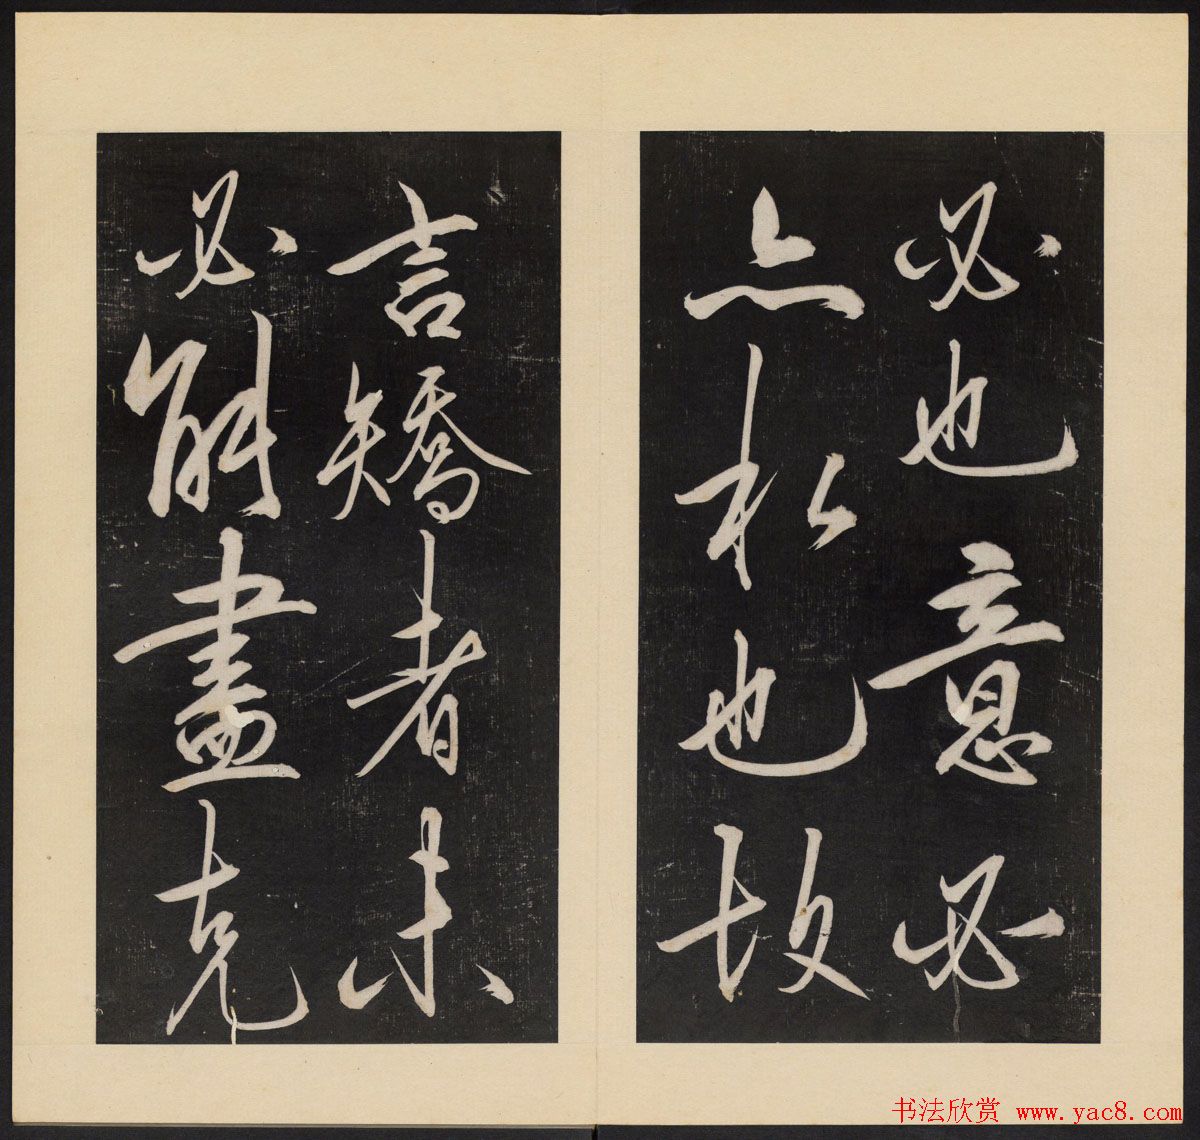 必也意必
亦私也故
言矯者未
必能盡克
书法欣赏 www.yac8.com